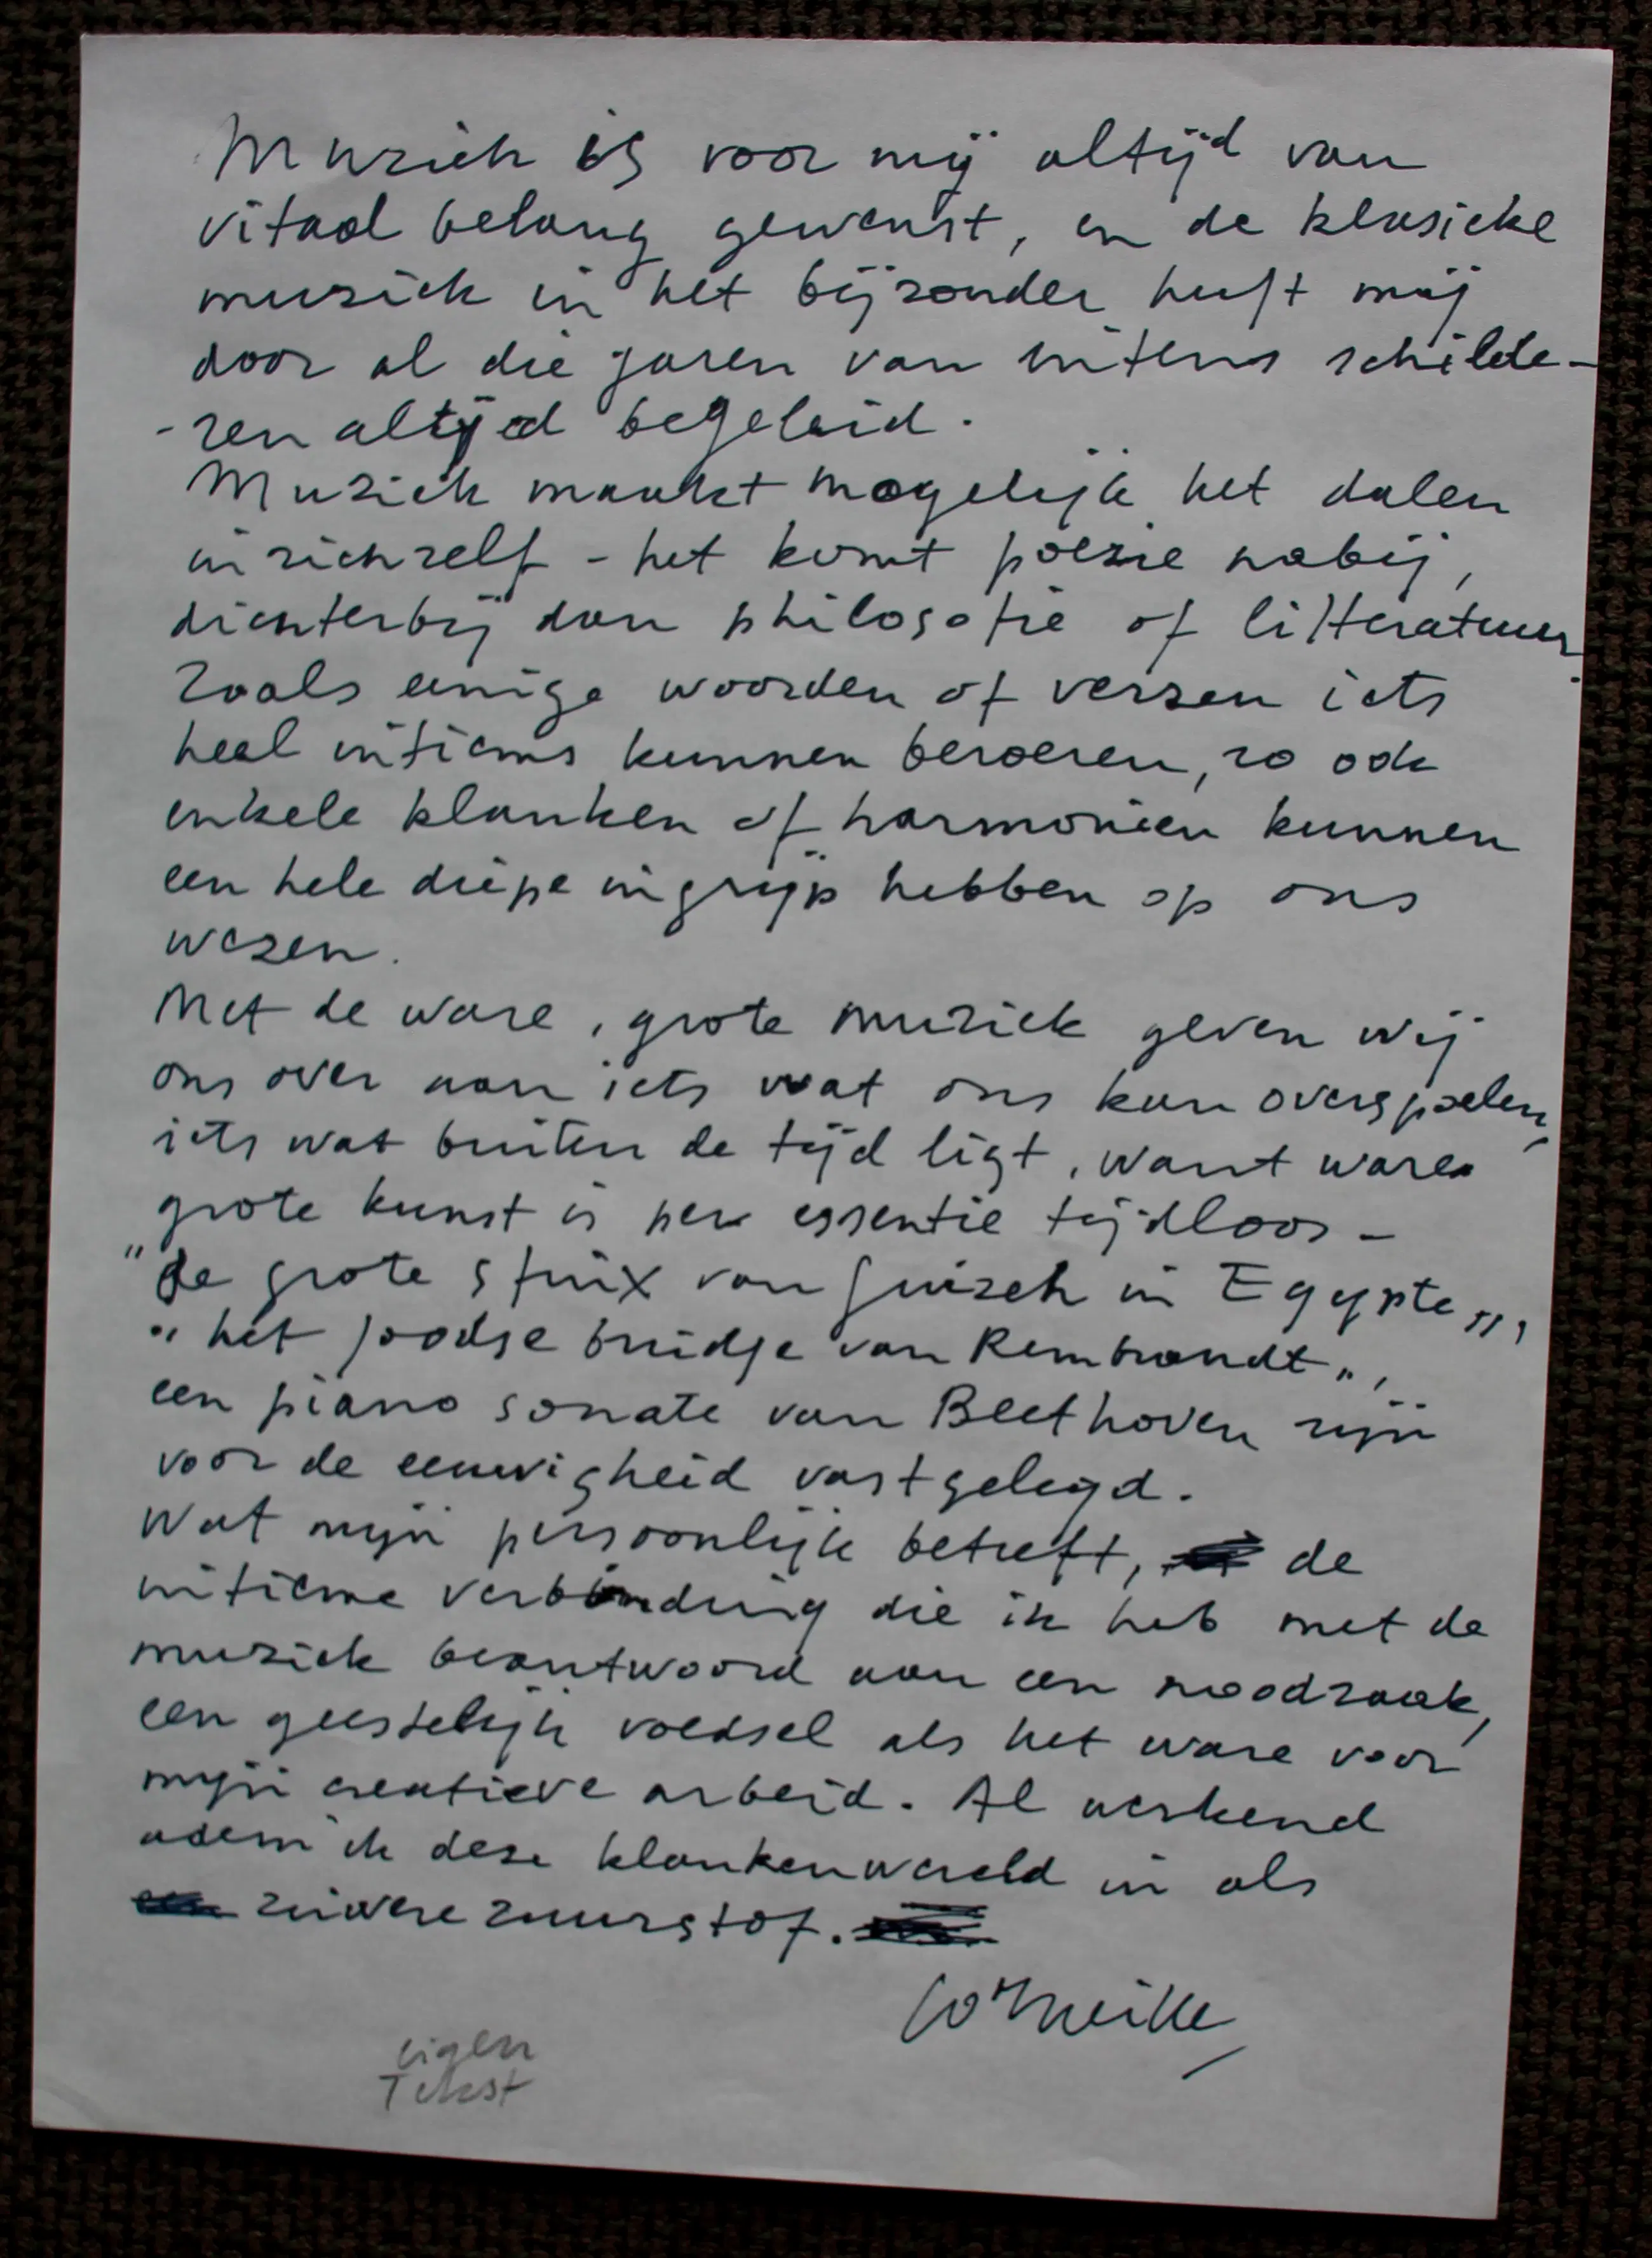 Muziek is voor mij altijd van
vitaal belang geweest, en de klasieke
muziek in het bijzonder heeft mij
door al die jaren van intens schilde-
-ren altijd begeleid.
Muziek maakt mogelijk het dalen
in zichzelf - het komt poëzie nabij,
dichterbij dan philosofie of litteratuur.
Zoals enige woorden of verzen iets
heel intiems kunnen beroeren, zo ook
enkele klanken of harmonieën kunnen
een hele diepe ingrijp hebben op ons
wezen.
Met de ware, grote muziek geven wij
ons over aan iets wat ons kan overspoelen,
iets wat buiten de tijd ligt, want ware
grote kunst is per essentie tijdloos -
"de grote sfinx van Guizeh in Egypte",
"het joodse bruidje van Rembrandt",
een piano sonate van Beethoven zijn
voor de eeuwigheid vastgelegd.
Wat mijn persoonlijk betreft, de
intieme verbinding die ik heb met de
muziek beantwoord aan een noodzaak,
een geestelijk voedsel als het ware voor
mijn creatieve arbeid. Al werkend
adem ik deze klankenwereld in als
zuivere zuurstof.
Corneille
eigen
Tekst